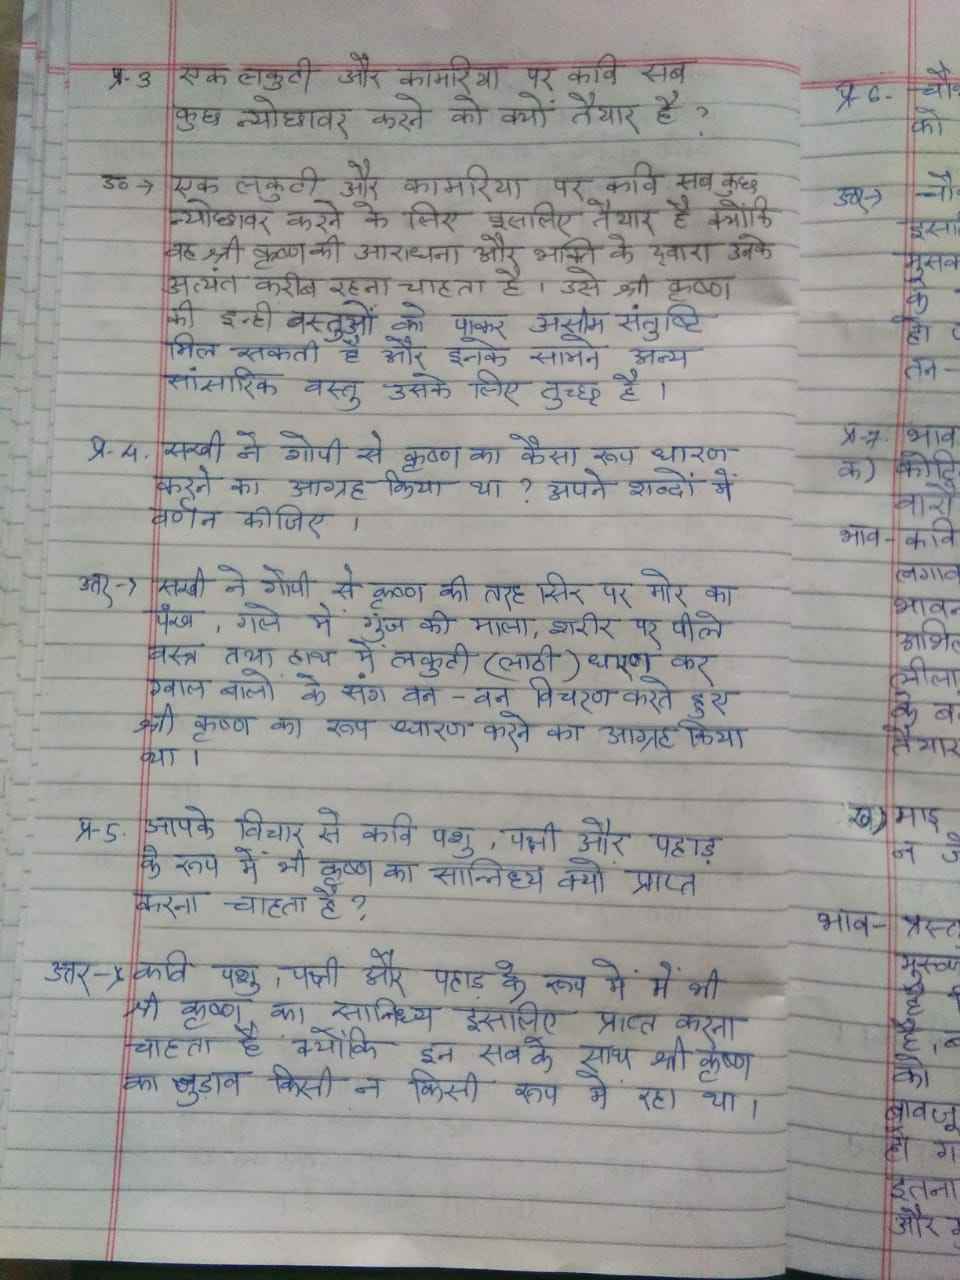 प्र-3 एक लकुटी और कामरिया पर कवि सब
कुछ न्योछावर करने को क्यों तैयार है ?
उ० → एक लकुटी और कामरिया पर कवि सब कुछ
न्योछावर करने के लिए इसलिए तैयार है क्योंकि
वह श्री कृष्ण की आराधना और भक्ति के द्वारा उनके
अत्यंत करीब रहना चाहता है । उसे श्री कृष्ण
की इन्ही वस्तुओं को पाकर असीम संतुष्टि
मिल सकती है और इनके सामने अन्य
सांसारिक वस्तु उसके लिए तुच्छ है ।
प्र-4. सखी ने गोपी से कृष्ण का कैसा रूप धारण
करने का आग्रह किया था ? अपने शब्दों में
वर्णन कीजिए ।
उत्तर → सखी ने गोपी से कृष्ण की तरह सिर पर मोर का
पंख , गले में गुंज की माला, शरीर पर पीले
वस्त्र तथा हाथ में लकुटी (लाठी) धारण कर
ग्वाल बालों के संग वन - वन विचरण करते हुए
श्री कृष्ण का रूप धारण करने का आग्रह किया
था ।
प्र-5. आपके विचार से कवि पशु , पक्षी और पहाड़
के रूप में भी कृष्ण का सान्निध्य क्यों प्राप्त
करना चाहता है ?
उत्तर → कवि पशु , पक्षी और पहाड़ के रूप में में भी
श्री कृष्ण का सानिध्य इसलिए प्राप्त करना
चाहता है क्योंकि इन सबके साथ श्री कृष्ण
का जुडाव किसी न किसी रूप में रहा था ।
प्र-6.
को
उत्तर →
के
हो
तन -
प्र-7. भाव
क)
भाव - कवि
तैयार
ख) माइ
न
भाव -
की
हो
इतना
और